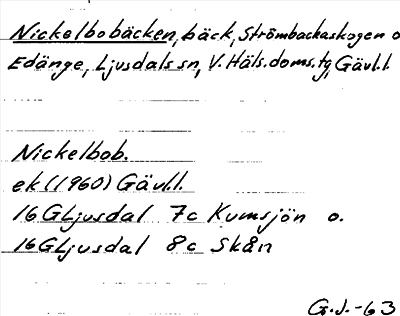 Nickelbobäcken, bäck, Strömbackaskogen o
Edänge, Ljusdals sn, V. Häls. doms. tg, Gävl.l.
Nickelbob.
ek (1960) Gävl.l.
16GLjusdal 7c Kumsjön o.
16GLjusdal 8c Skån
G.J.-63